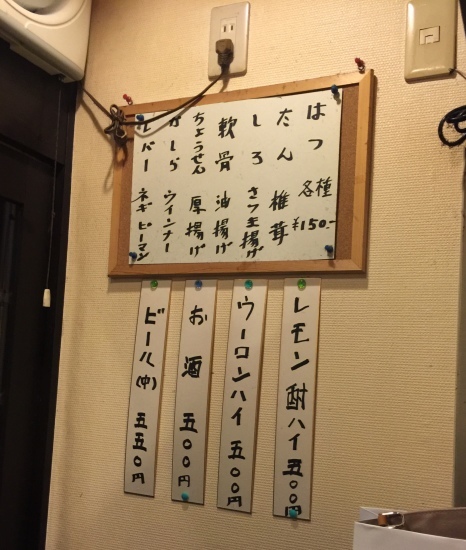 はつ 各種 ¥150.-
たん 椎茸
しろ さつま揚げ
軟骨 油揚げ
ちょうせん 厚揚げ
かしら ウインナー
レバー ネギピーマン
レモン酎ハイ 五〇〇円
ウーロンハイ 五〇〇円
お酒 五〇〇円
ビール(中) 五五〇円